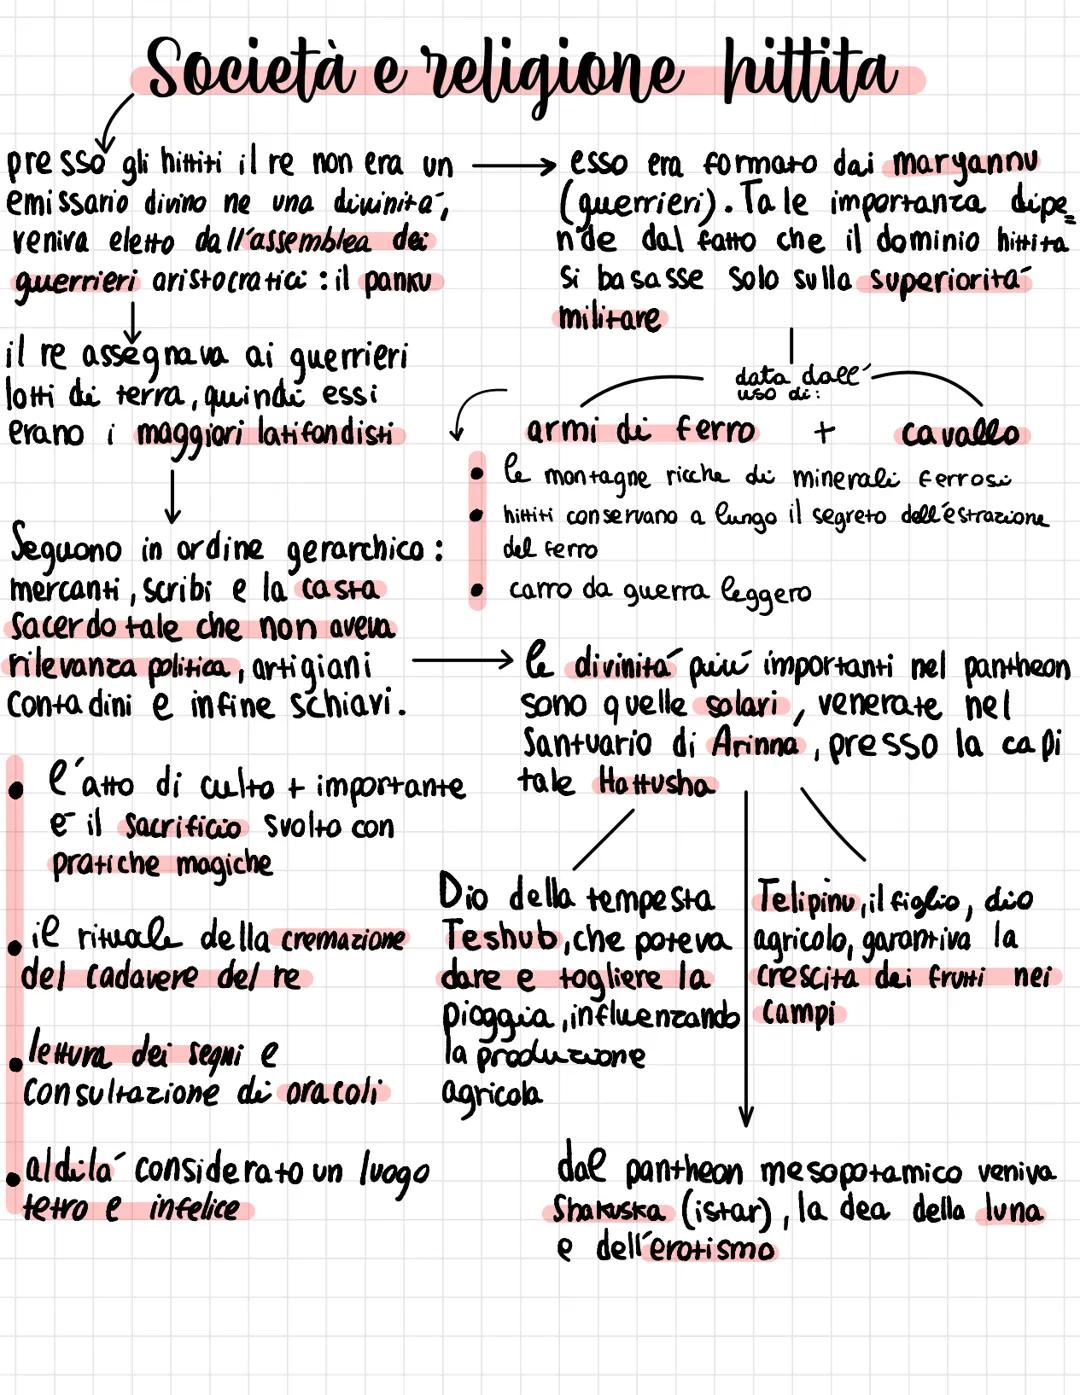 Società e religione hittita
presso gli hittiti il re non era un
emissario divino ne una divinità,
veniva eletto dall'assemblea dei
guerrieri aristocratici : il panku
il re assegnava ai guerrieri
lotti di terra, quindi essi
erano i maggiori latifondisti
Seguono in ordine gerarchico :
mercanti, scribi e la casta
sacerdotale che non aveva
rilevanza politica, artigiani
contadini e infine schiavi.
• l'atto di culto + importante
è il sacrificio svolto con
pratiche magiche
• il rituale della cremazione
del cadavere del re
• lettura dei segni e
consultazione di oracoli
• aldilà considerato un luogo
tetro e infelice
esso era formato dai maryannu
(guerrieri). Tale importanza dipe=
nde dal fatto che il dominio hittita
si basasse solo sulla superiorità
militare
data dall'
uso di:
armi di ferro + cavallo
• le montagne ricche di minerali ferrosi
• hittiti conservano a lungo il segreto dell'estrazione
del ferro
• carro da guerra leggero
le divinità più importanti nel pantheon
sono quelle solari, venerate nel
Santuario di Arinna, presso la capi
tale Hattusha
Dio della tempesta
Teshub, che poteva
dare e togliere la
pioggia, influenzando
la produzione
agricola
Telipinu, il figlio, dio
agricolo, garantiva la
crescita dei frutti nei
campi
dal pantheon mesopotamico veniva
Shakuska (istar), la dea della luna
e dell'erotismo